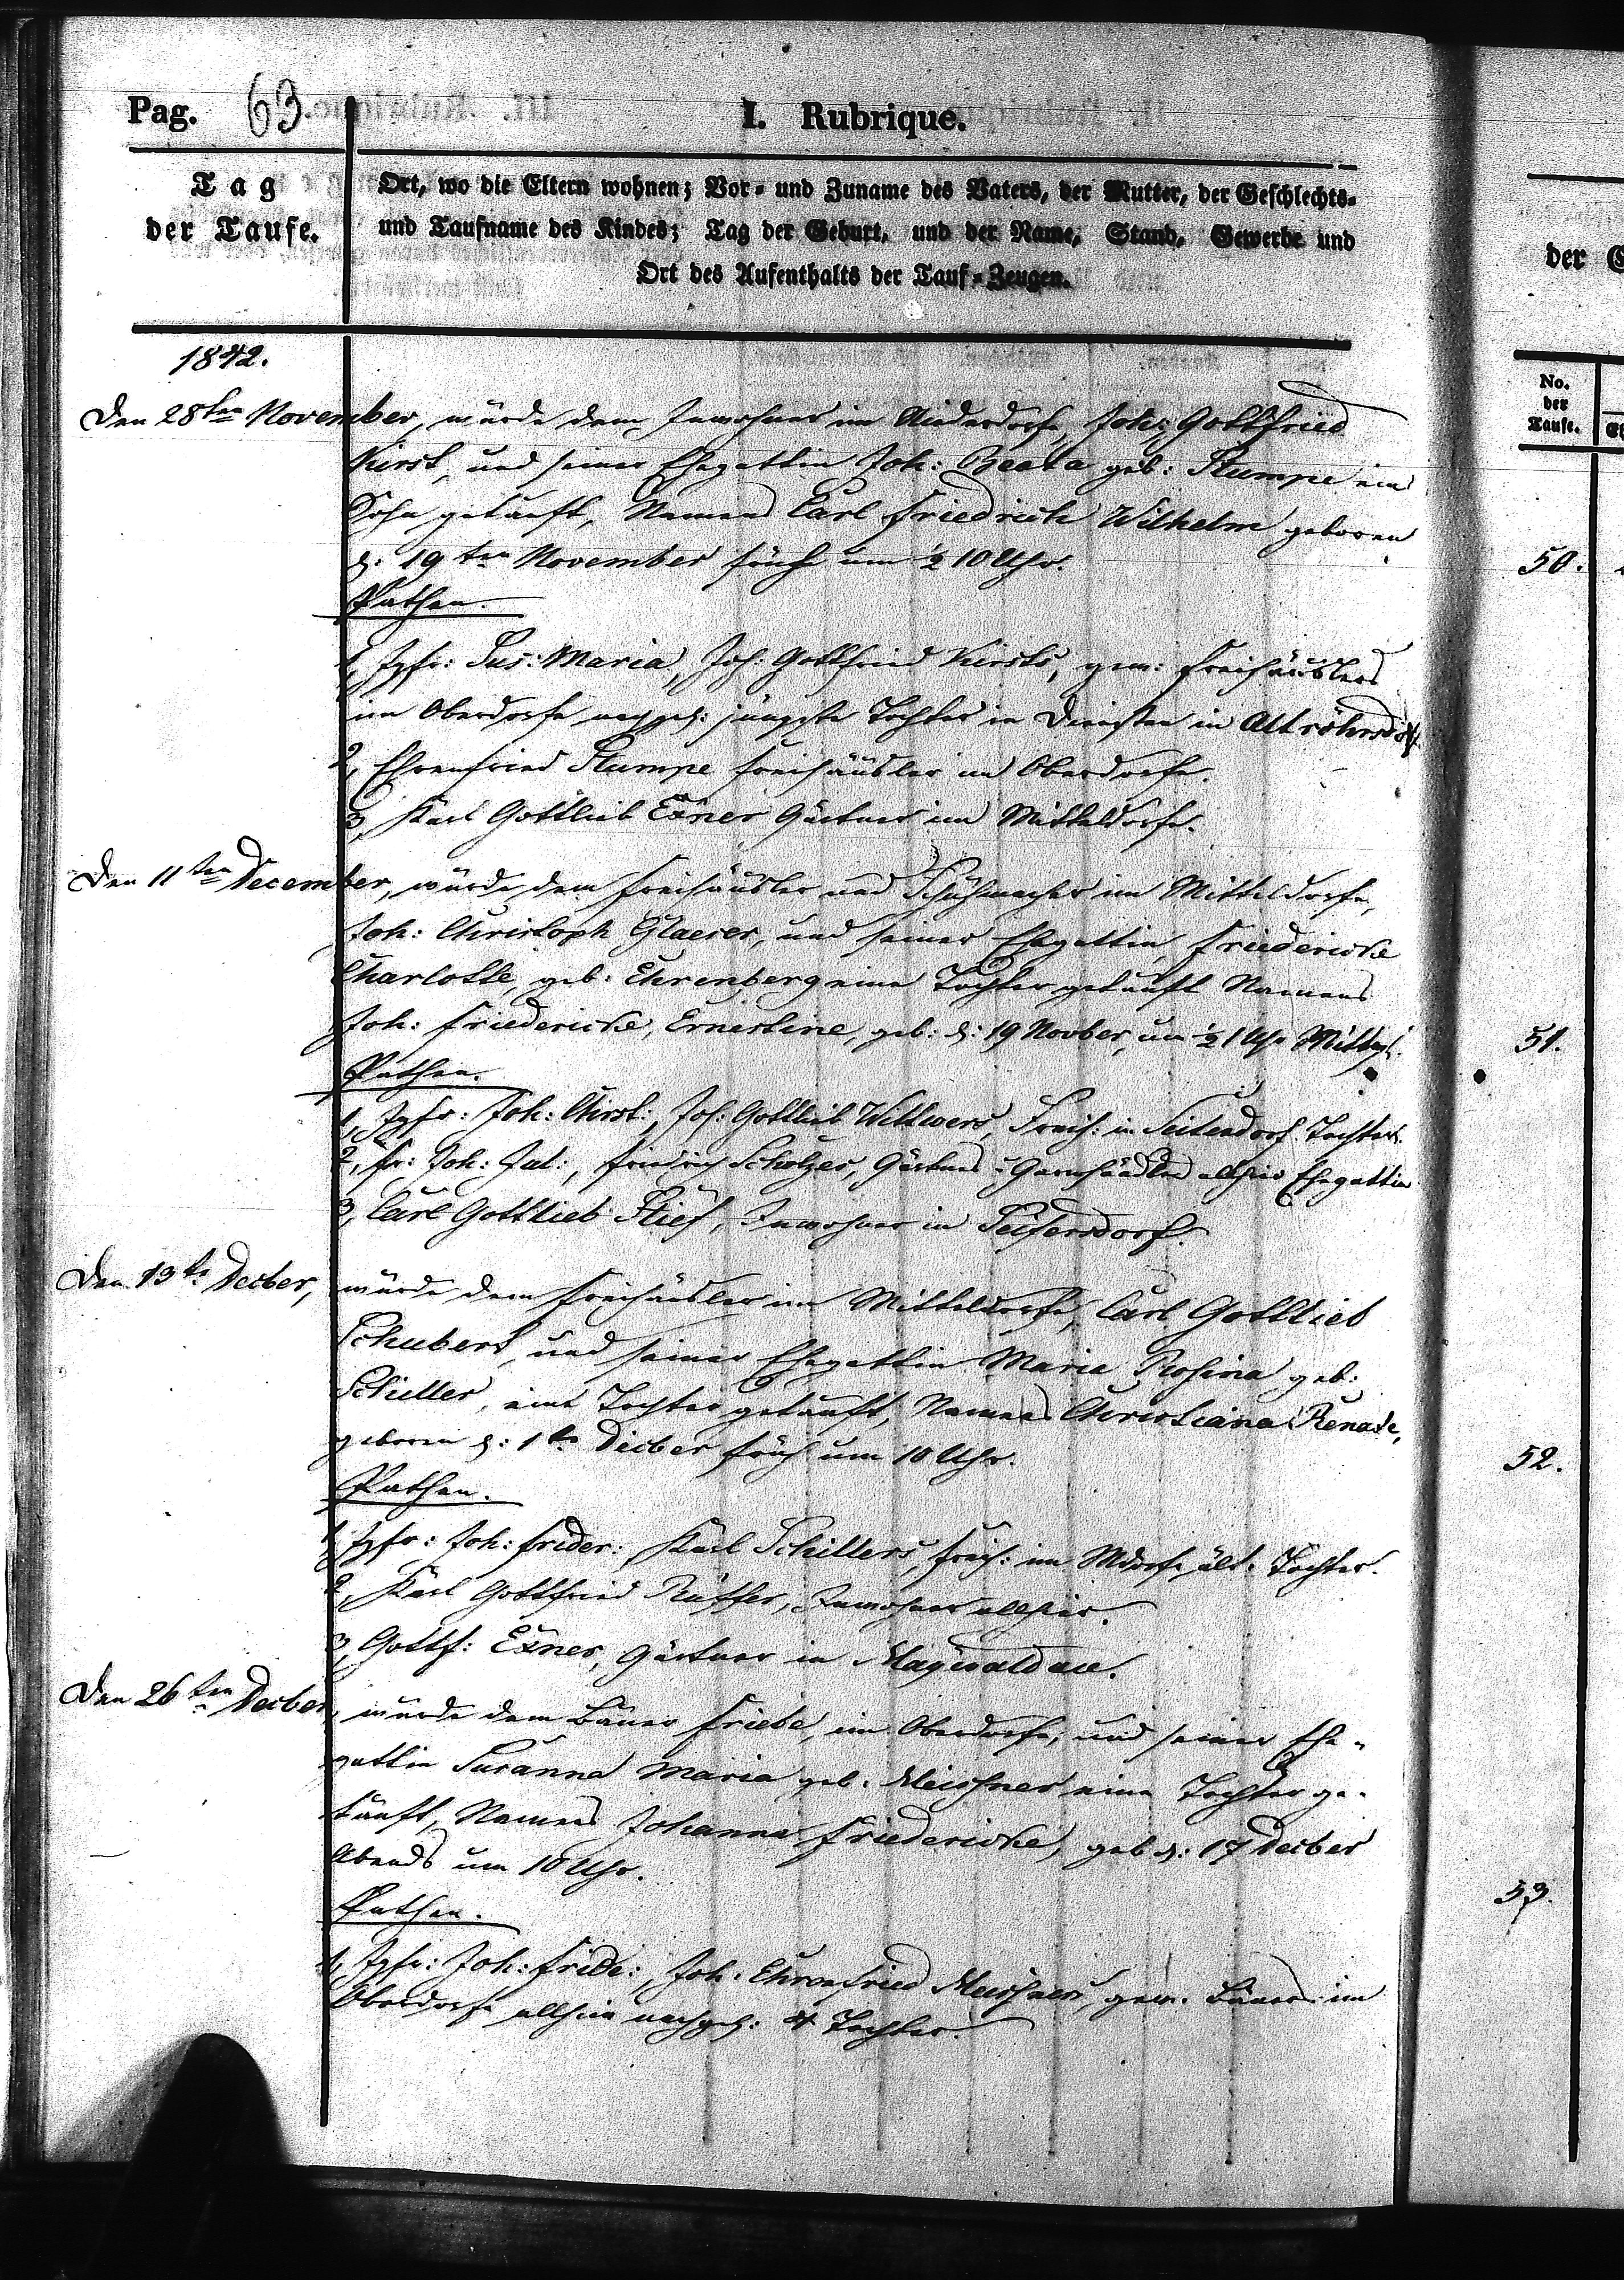 Pag. 63.
I. Rubrique.
Tag
der Taufe.
Ort, wo die Eltern wohnen; Vor- und Zuname des Vaters, der Mutter, der Geschlechts-
und Taufname des Kindes; Tag der Geburt, und der Name, Stand, Gewerbe und
Ort des Aufenthalts der Tauf-Zeugen.
1842.
Den 28ten November, wurde dem Inwohner im Niederdorfe, Joh: Gottfried
Kirst, und seiner Ehegattin Joh: Beata geb: Stumpe ein
Sohn getauft, Namens Carl Friedrich Wilhelm geboren
d: 19ten November früh um ½ 10 Uhr.
Pathen.
1, Jgfr: Sus: Maria, Joh: Gottfried Kirsts, gew: Freihäuslers
im Oberdorfe nachgel: jüngste Tochter in Diensten in Altröhrsdorf.
2, Ehrenfried Stumpe Freihäusler im Oberdorfe.
3, Karl Gottlieb Exner Gärtner im Mitteldorfe.
Den 11ten December, wurde dem Freihäusler und Schuhmacher im Mitteldorfe,
Joh: Christoph Glaeser, und seiner Ehegattin, Friedericke
Charlotte, geb: Ehrenberg eine Tochter getauft Namens
Joh: Friedericke, Ernestine, geb: d: 19 Novber, um ½ 1 Uhr Mittag.
Pathen.
1, Jgfr: Joh: Christ:, Joh: Gottlieb Wittwers, Freih: in Seitendorf Tochter.
2, Fr: Joh: Jul:, Friedrich Scholzes, Gärtners u Garnhändler allhier Ehegattin
3, Carl Gottlieb Stief, Inwohner in Seifersdorf.
Den 13ts Decber, wurde dem Freihäusler im Mitteldorfe, Carl Gottlieb
Schubert, und seiner Ehegattin Maria Rosina geb:
Schiller, eine Tochter getauft, Namens Christiana Renate,
geboren d: 1ts Decber früh um 10 Uhr.
Pathen.
1, Jgfr: Joh: Frider: Karl Schillers, Freih: im Mdorfe ält: Tochter.
2, Karl Gottfried Inwohner allhier.
3, Gottf: Exner, Gärtner in Maywaldau.
Den 26ten Decber, wurde dem Bauer Friebe, im Oberdorfe, und seiner Ehe-
gattin Susanna Maria geb. Meissner eine Tochter ge-
tauft, Namens Johanne Friedericke, geb d: 17 Decber
Abends um 10 Uhr.
Pathen.
1, Jgfr: Joh: Fride:, Joh: Ehrenfried Meissners, gew. Bauers im
Oberdorfe allhier nachgel: 4 Tochter.
der
No.
der
Taufe.
50.
51.
52.
53.